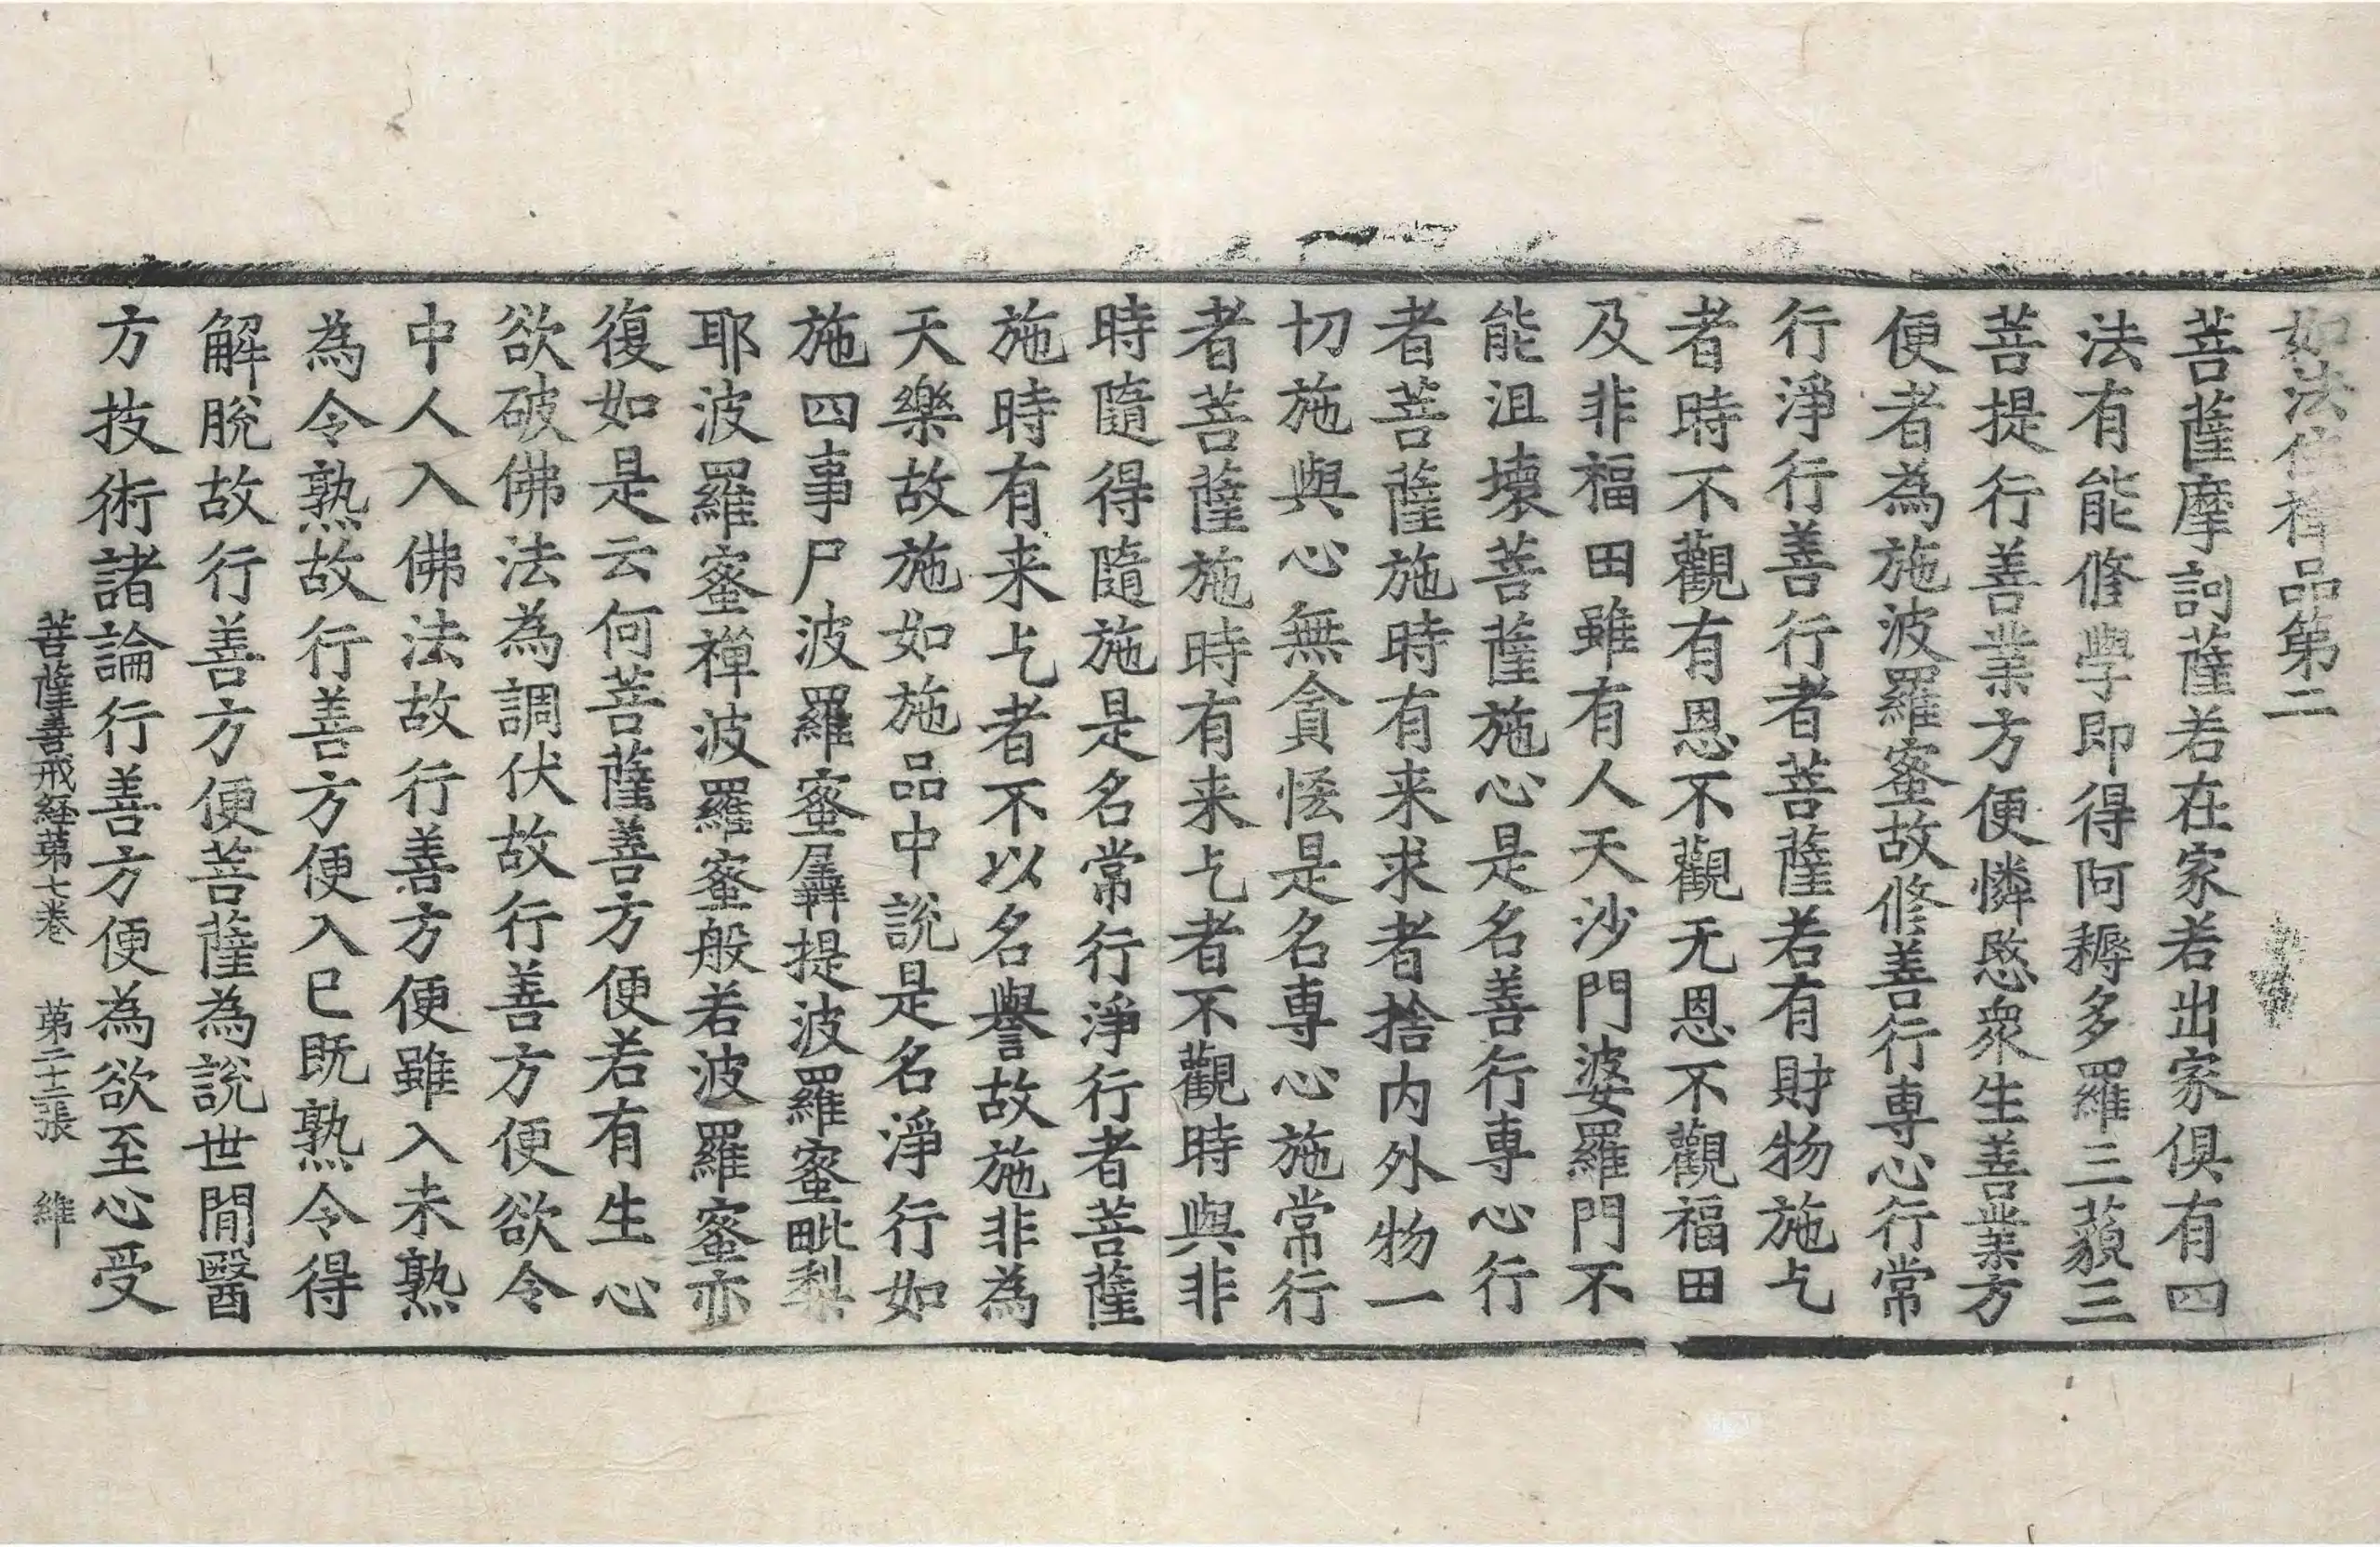 如法住禪品第二
菩薩摩訶薩若在家若出家俱有四
法有能修學即得阿耨多羅三藐三
菩提行善業方便憐愍衆生善業方
便者為施波羅蜜故修善行專心行常
行淨行善行者菩薩若有財物施乞
者時不觀有恩不觀无恩不觀福田
及非福田雖有人天沙門婆羅門不
能沮壞菩薩施心是名善行專心行
者菩薩施時有来求者捨内外物一
切施與心無貪恡是名專心施常行
者菩薩施時有来乞者不觀時與非
時隨得隨施是名常行淨行者菩薩
施時有来乞者不以名譽故施非為
天樂故施如施品中說是名淨行如
施四事尸波羅蜜羼提波羅蜜毗梨
耶波羅蜜禅波羅蜜般若波羅蜜亦
復如是云何菩薩善方便若有生心
欲破佛法為調伏故行善方便欲令
中人入佛法故行善方便雖入未熟
為令熟故行善方便入已既熟令得
解脫故行善方便菩薩為說世閒醫
方技術諸論行善方便為欲至心受
菩薩善戒経第七卷 第二十二張 維